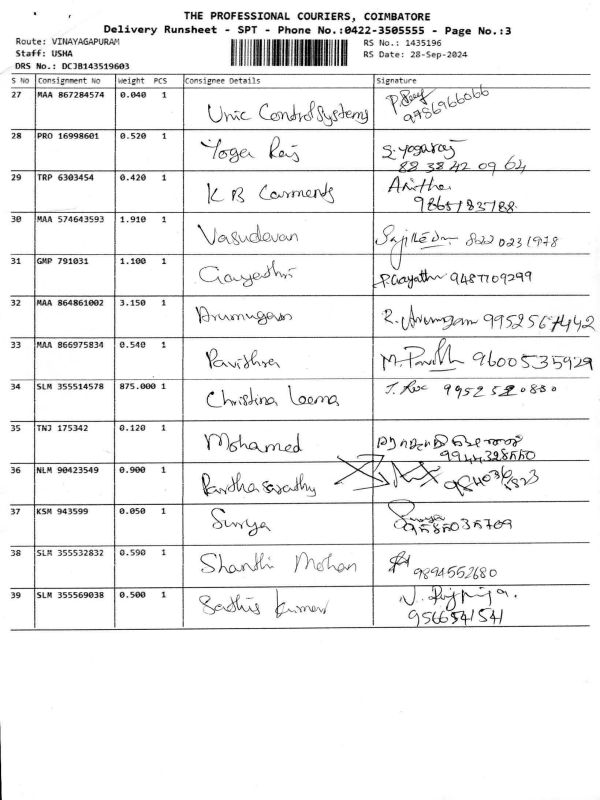 THE PROFESSIONAL COURIERS, COIMBATORE
Delivery Runsheet - SPT - Phone No.:0422-3505555 - Page No.:3
Route: VINAYAGAPURAM RS No.: 1435196
Staff: USHA RS Date: 28-Sep-2024
DRS No.: DCJB143519603
S No Consignment No Weight PCS Consignee Details Signature
27 MAA 867284574 0.040 1 Unic Control Systems
9786966066
28 PRO 16998601 0.520 1 Yoga Raj S. Yogaraj
88 38 42 09 64
29 TRP 6303454 0.420 1 K B Garments Anitha
9865783788
30 MAA 574643593 1.910 1 Vasudevan 8220231978
31 GMP 791031 1.100 1 Gayathri P. Gayathri 9487709299
32 MAA 864861002 3.150 1 Arumugam R. Arumugam 9952567442
33 MAA 866975834 0.540 1 Pavithra M. 9600535929
34 SLM 355514578 875.000 1 Christina Leema 9952520880
35 TNJ 175342 0.120 1 Mohamed
9944328550
36 NLM 90423549 0.900 1 Parthasarathy
37 KSM 943599 0.050 1 Surya Surya
9585035709
38 SLM 355532832 0.590 1 Shanthi Mohan 9894552680
39 SLM 355569038 0.500 1 Sathis Kumar
9566541541